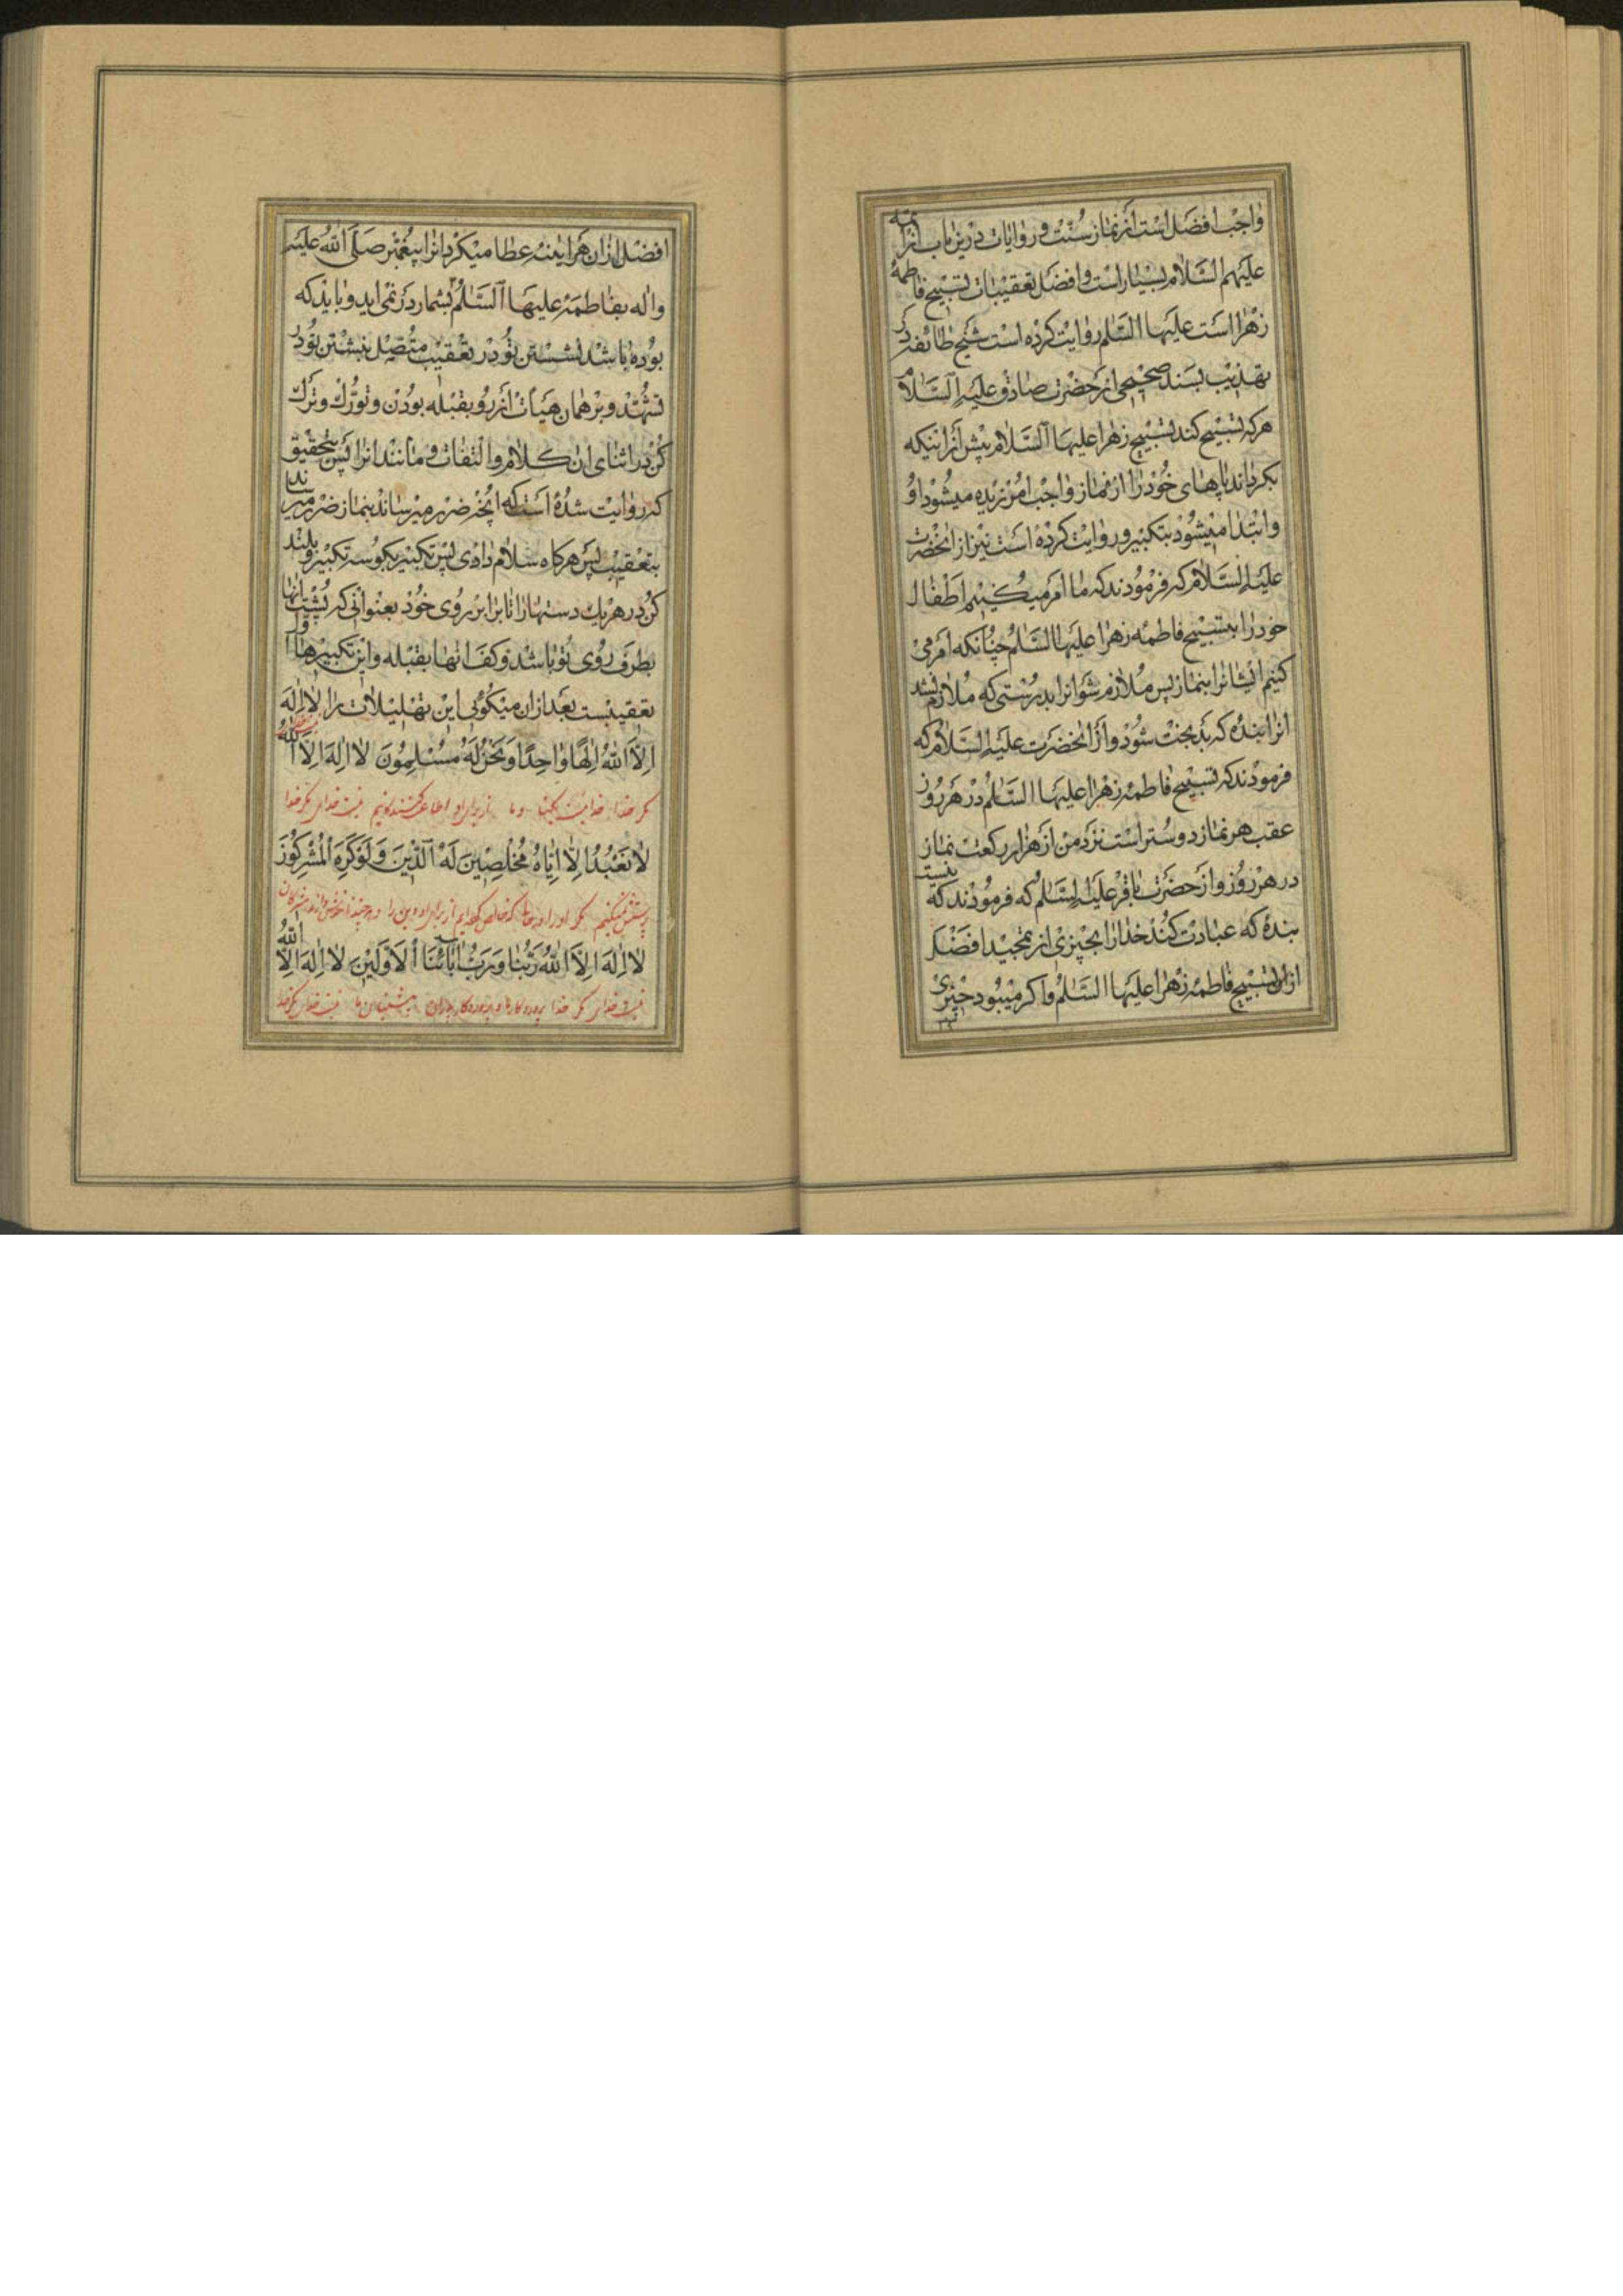 واجب افضل است از نماز سنت و روایات درین باب از ائمه
علیهم السلام بسیار است و افضل تعقیبات تسبیح فاطمهٔ
زهرا است علیها السلم روایت کرده است شیخ طائفه در
تهذیب بسند صحیحی از حضرت صادق علیه السلام
هرکه تسبیح کند تسبیح زهرا علیها السلام پیش از اینکه
بکرداند پاهای خود را از نماز واجب امرزیده میشود او
وابتدا میشود بتکبیر و روایت کرده است نیز از انحضرت
علیه السلام که فرمودند که ما امر میکنیم اطفال
خود را بتسبیح فاطمه زهرا علیها السلم چنانکه امر می
کنیم ایشانرا بنماز پس ملازم شو انرا بدرستی که ملازم نشد
انرا بنده که بدبخت شود و از انحضرت علیه السلام که
فرمودند که تسبیح فاطمه زهرا علیها السلم در هر روز
عقب هر نماز دوستر است نزد من از هزار رکعت نماز
در هر روز و از حضرت باقر علیه السلم که فرمودند که نیست
بندهٔ که عبادت کند خدا را بچیزی از تمجید افضل
از تسبیح فاطمه زهرا علیها السلم و اکر میبود چیزی
افضل ازان هراینه عطا میکرد انرا پیغمبر صلی الله علیه
واله بفاطمه علیها السلم بشمار در نمی اید و باید که
بوده باشد نشستن تو در تعقیب متصل بنشستن تو در
تشهد و بر همان هیات از رو بقبله بودن و تورك و ترك
کن در اثنای ان کلام والتفات و مانند انرا پس بتحقیق
که روایت شده است که انچه ضرر میرساند بنماز ضرر میرساند
بتعقیب پس هرکاه سلام دادی پس تکبیر بکو سه تکبیر و بلند
کن در هریك دستها را تا برابر روی خود بعنوانی که پشت انها
بطرف روی تو باشد و کف انها بقبله و این تکبیرها اول
تعقیبست بعد ازان میکوئی این تهلیلات را لا اله
الا الله الها واحدا ونحن له مسلمون لا اله الا الله
مکر خدا خدائیست یکتا و ما از برای او اطاعت کنندکانیم نیست خدائی مکر خدا
لا نعبد الا ایاه مخلصین له الدین ولو کره المشرکون
پرستش نمیکنیم مکر او را در حالتی که خالص کرده‌ایم از برای او دین را و هرچند
لا اله الا الله ربنا ورب ابائنا الاولین لا اله الا الله
نیست خدائی مکر خدا پروردکار ما و پروردکار پدران پیشینیان ما نیست خدائی مکر خدا